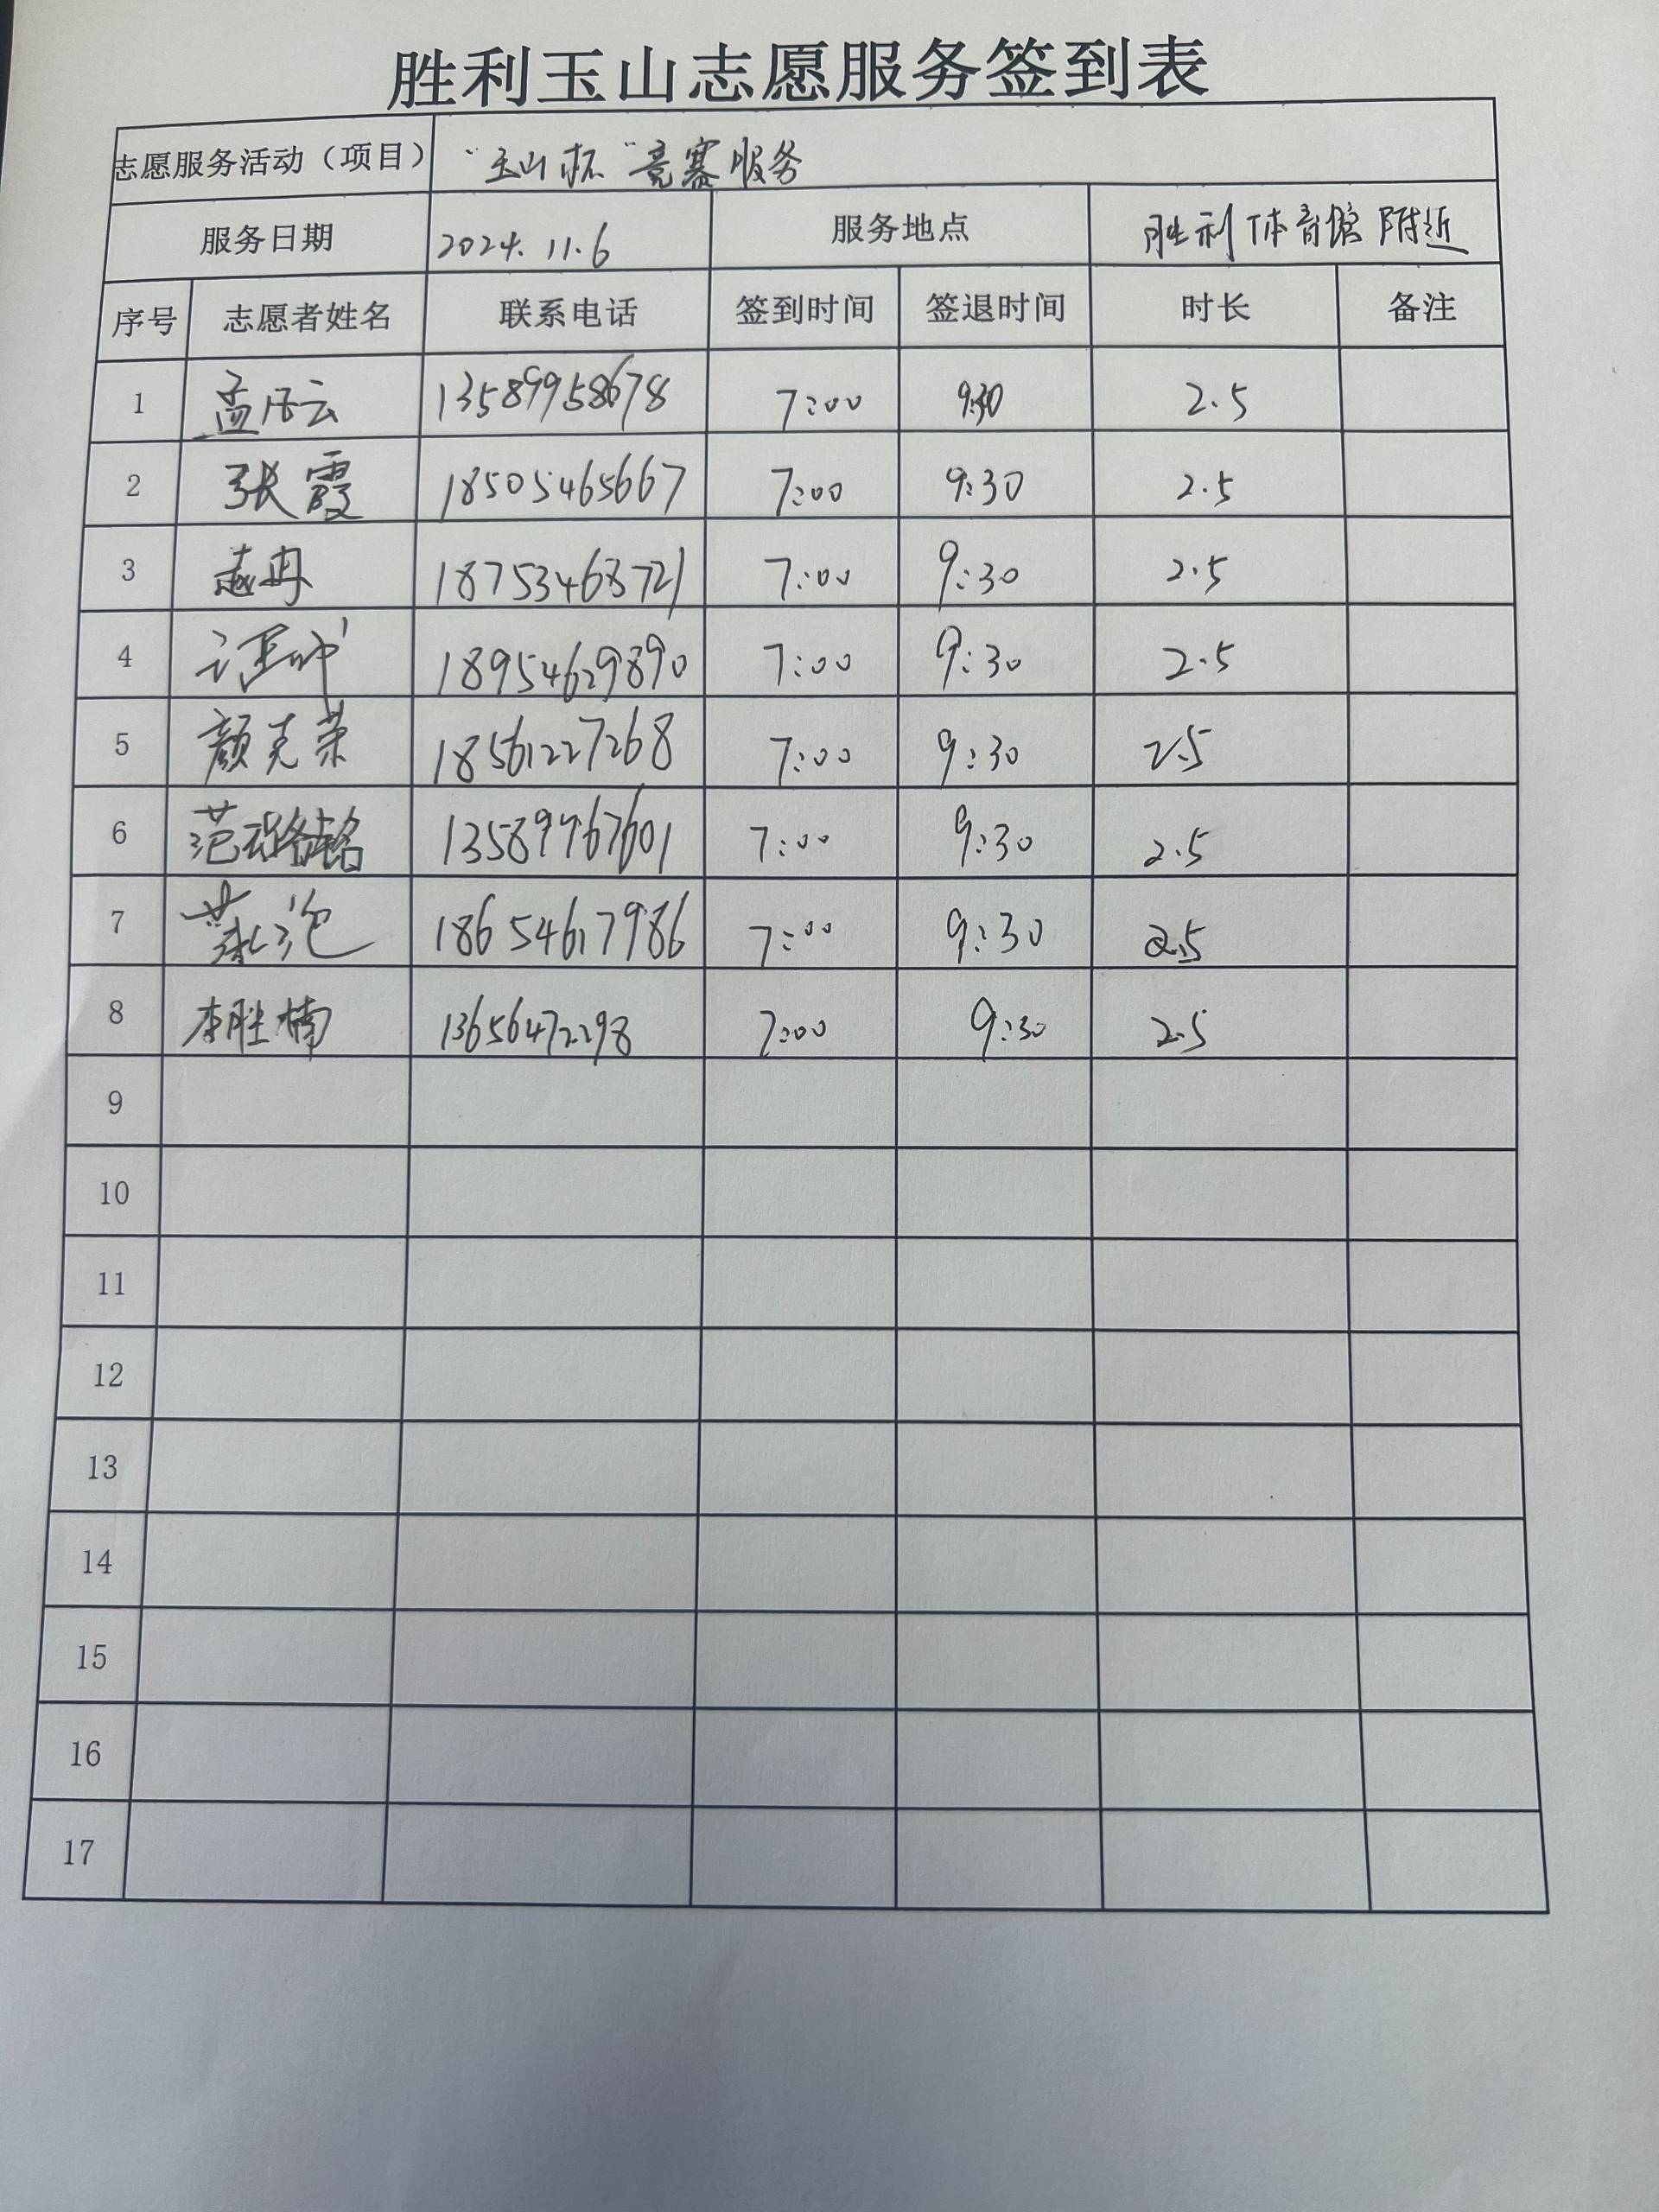 胜利玉山志愿服务签到表
志愿服务活动（项目） “玉山杯”竞赛服务
服务日期 2024.11.6 服务地点 胜利体育馆附近
序号 志愿者姓名 联系电话 签到时间 签退时间 时长 备注
1 13589958678 7:00 9:30 2.5
2 张霞 18505465667 7:00 9:30 2.5
3 赵冉 18753468721 7:00 9:30 2.5
4 18954629890 7:00 9:30 2.5
5 颜克荣 18561227268 7:00 9:30 2.5
6 13589967601 7:00 9:30 2.5
7 18654617986 7:00 9:30 2.5
8 李胜楠 13656472298 7:00 9:30 2.5
9
10
11
12
13
14
15
16
17